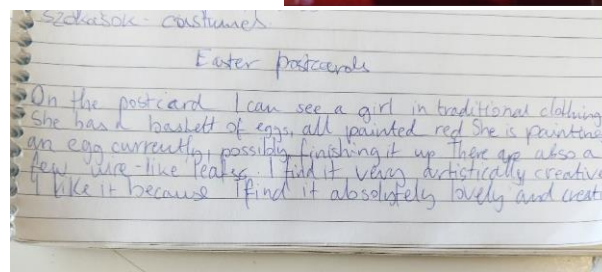 szokások - costumes.
Easter postcards
On the postcard I can see a girl in traditional clothing
She has a baskett of eggs, all painted red She is painting
an egg currently, possibly finishing it up There are also a
few wire-like leafs. I find it very artistically creative
I like it because I find it absolutely lovely and creati